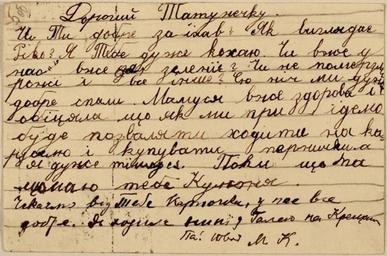 Дорогий Татунечку.
Чи Ти добре за їхав? Як виглядає
Я Тебе дуже кохаю. Чи вже у
нас вже зеленіє? Чи не померзли
рожі і все інше? Сю ніч ми дуже
добре спали. Мамуся вже здорова і
обіцяла що як ми при їдемо
буде позваляти ходити на ка
руселю і купувати
я дуже тішуся. Поки що па
тебе
Чекаємо від Тебе карточки, у нас все
добре. Я ходила нині з Галею на Крещат
Па! М К.